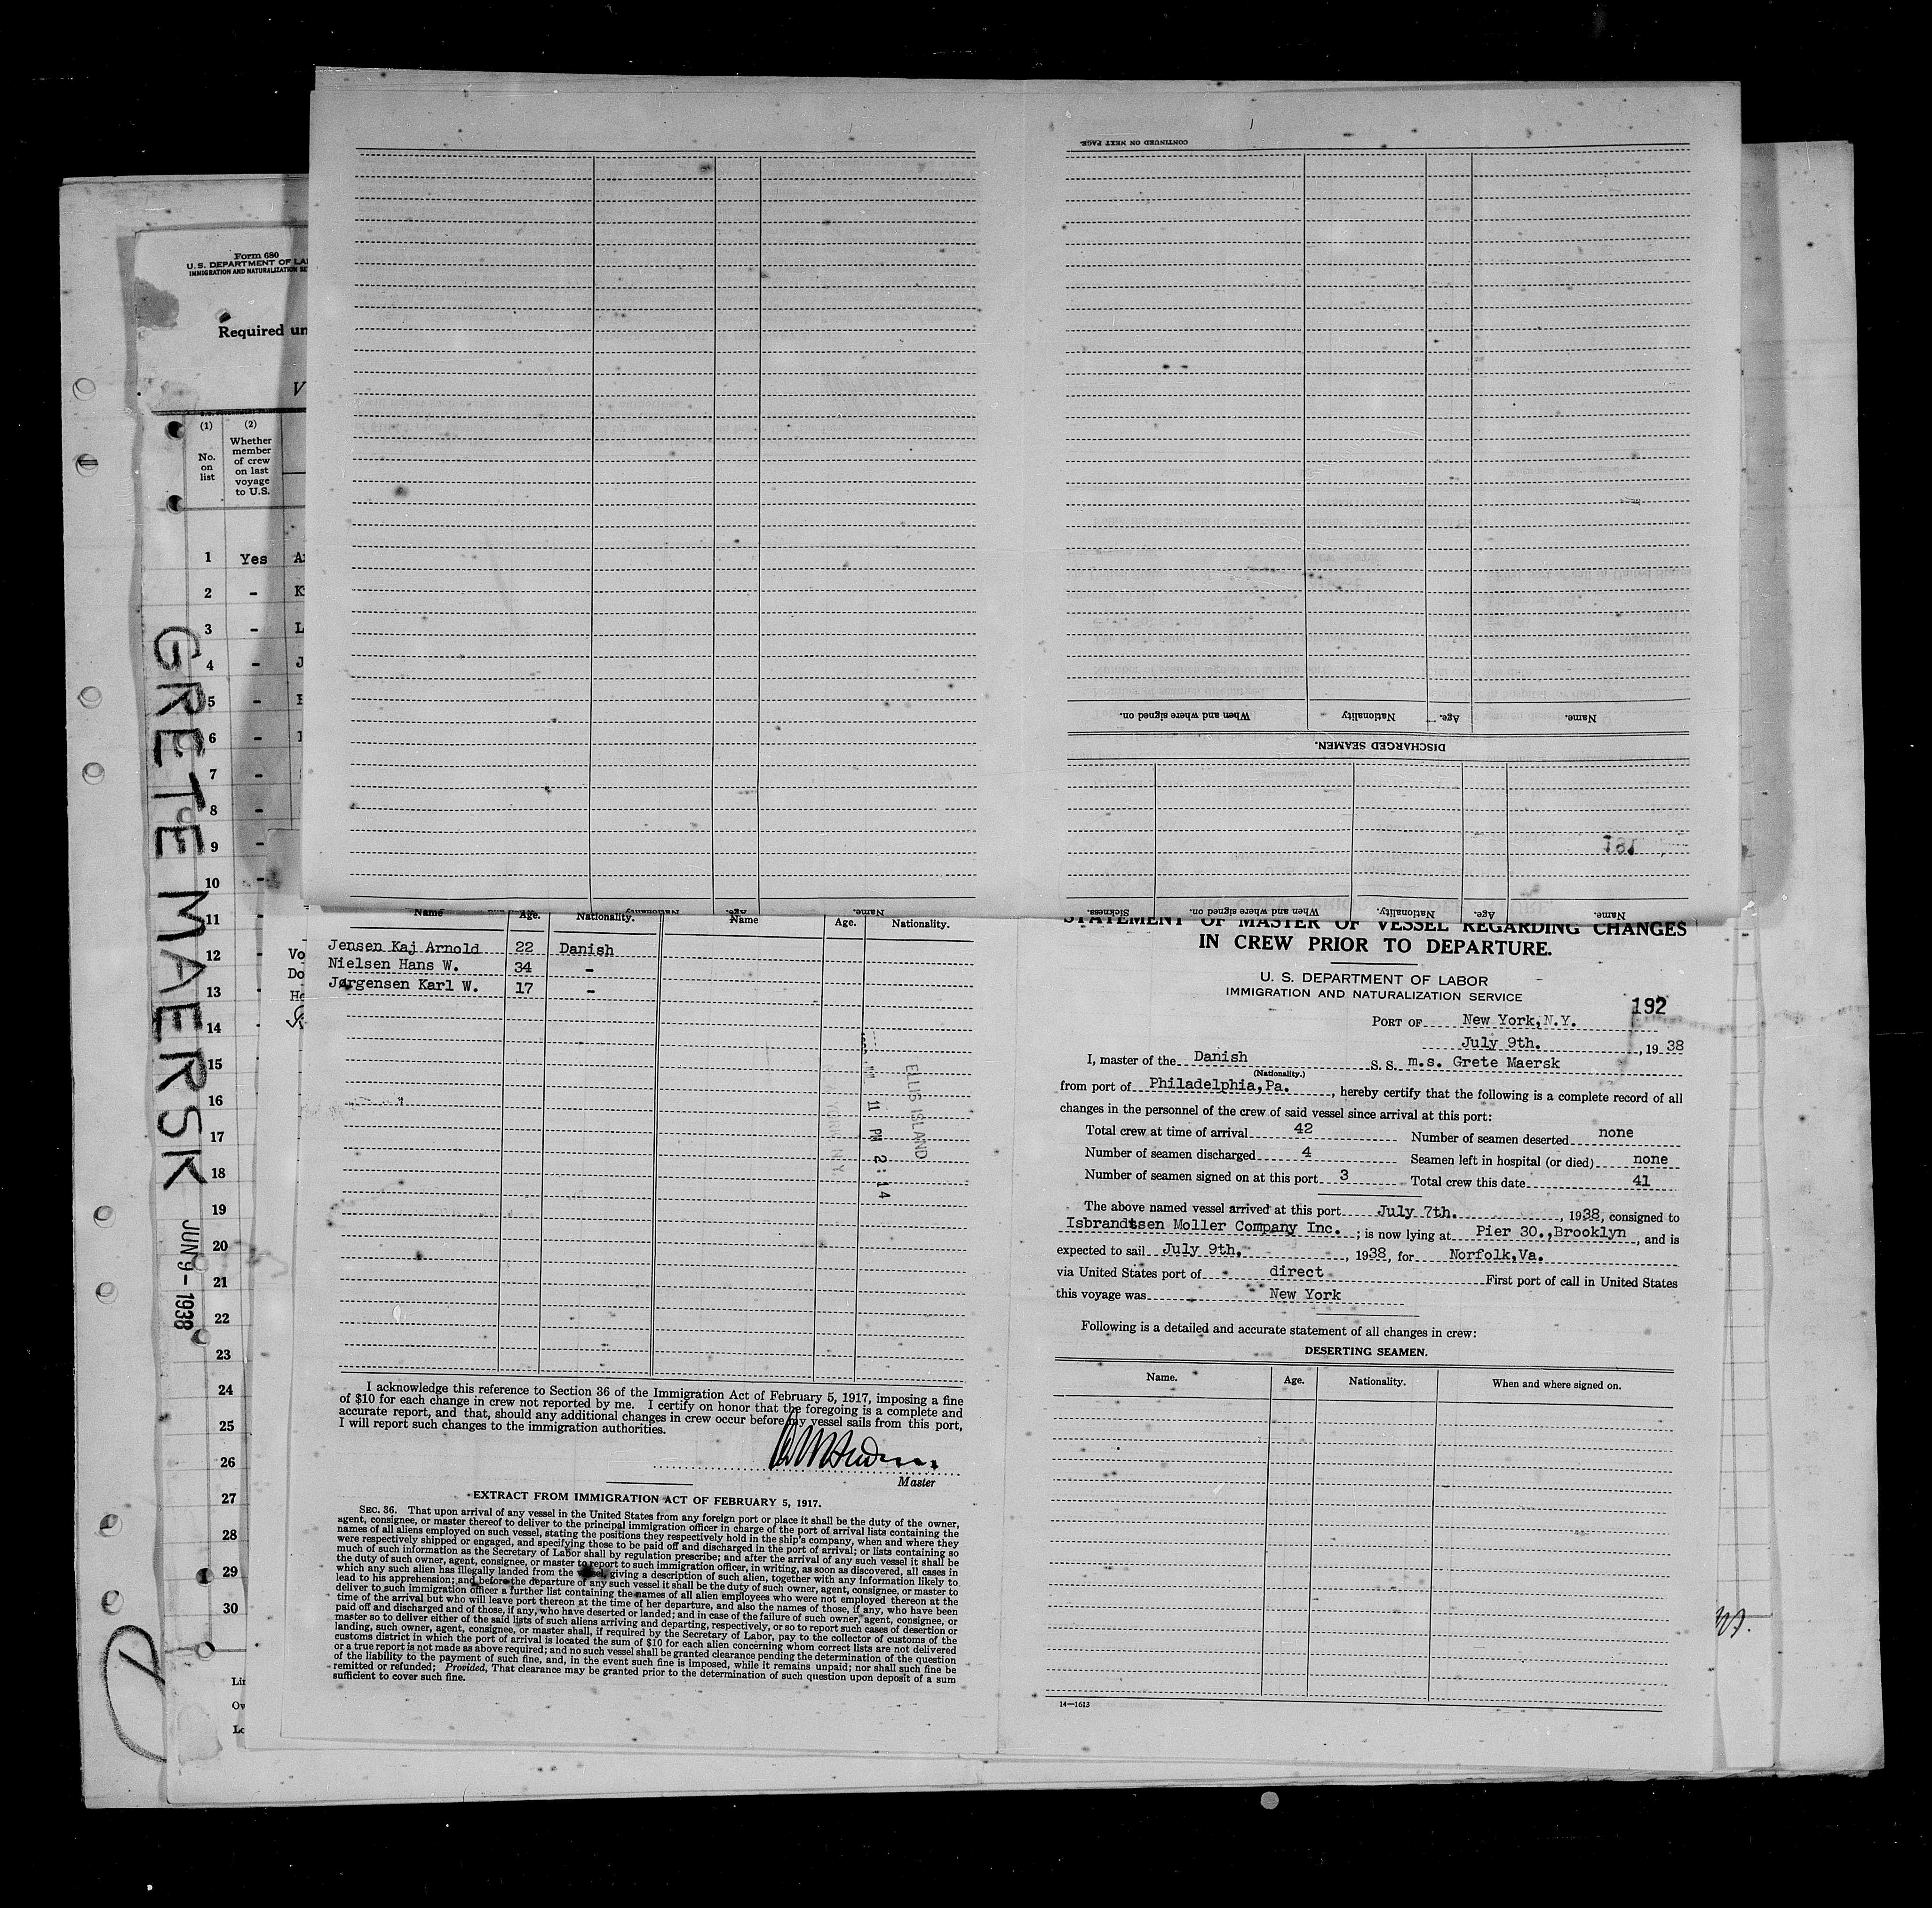 Form 680
U. S. DEPARTMENT OF LA
IMMIGRATION AND NATURALIZATION SE
Required un
V
(1)
No.
on
list
(2)
Whether
member
of crew
on last
voyage
to U.S.
1 Yes A
2 - K
3 - L
4 - J
5 -
6 -
7 -
8 -
9 -
10 -
11 -
12 -
13 -
14
15
16
17
18
19
20
21
22
23
24
25
26
27
28
29
30
Vo
Do
Ho
Lin
Ow
Lo
GRETE MAERSK
JUN 9 - 1938
CONTINUED ON NEXT PAGE.
Name. Age. Nationality When and where signed on.
DISCHARGED SEAMEN.
181
Name. Age. Nationality. When and where signed on. Sickness.
Name. Age. Nationality.
Name Age. Nationality. Name Age. Nationality.
Jensen Kaj Arnold 22 Danish
Nielsen Hans W. 34 -
Jørgensen Karl W. 17 -
ELLIS ISLAND
11 PM 2:14
I acknowledge this reference to Section 36 of the Immigration Act of February 5, 1917, imposing a fine
of $10 for each change in crew not reported by me. I certify on honor that the foregoing is a complete and
accurate report, and that, should any additional changes in crew occur before my vessel sails from this port,
I will report such changes to the immigration authorities.
Master
EXTRACT FROM IMMIGRATION ACT OF FEBRUARY 5, 1917.
SEC. 36. That upon arrival of any vessel in the United States from any foreign port or place it shall be the duty of the owner,
agent, consignee, or master thereof to deliver to the principal immigration officer in charge of the port of arrival lists containing the
names of all aliens employed on such vessel, stating the positions they respectively hold in the ship's company, when and where they
were respectively shipped or engaged, and specifying those to be paid off and discharged in the port of arrival; or lists containing so
much of such information as the Secretary of Labor shall by regulation prescribe; and after the arrival of any such vessel it shall be
the duty of such owner, agent, consignee, or master to report to such immigration officer, in writing, as soon as discovered, all cases in
which any such alien has illegally landed from the vessel, giving a description of such alien, together with any information likely to
lead to his apprehension; and before the departure of any such vessel it shall be the duty of such owner, agent, consignee, or master to
deliver to such immigration officer a further list containing the names of all alien employees who were not employed thereon at the
time of the arrival but who will leave port thereon at the time of her departure, and also the names of those, if any, who have been
paid off and discharged and of those, if any, who have deserted or landed; and in case of the failure of such owner, agent, consignee, or
master so to deliver either of the said lists of such aliens arriving and departing, respectively, or so to report such cases of desertion or
landing, such owner, agent, consignee, or master shall, if required by the Secretary of Labor, pay to the collector of customs of the
customs district in which the port of arrival is located the sum of $10 for each alien concerning whom correct lists are not delivered
or a true report is not made as above required; and no such vessel shall be granted clearance pending the determination of the question
of the liability to the payment of such fine, and, in the event such fine is imposed, while it remains unpaid; nor shall such fine be
remitted or refunded; Provided, That clearance may be granted prior to the determination of such question upon deposit of a sum
sufficient to cover such fine.
STATEMENT OF MASTER OF VESSEL REGARDING CHANGES
IN CREW PRIOR TO DEPARTURE.
U. S. DEPARTMENT OF LABOR
IMMIGRATION AND NATURALIZATION SERVICE
192
PORT OF New York, N.Y.
July 9th. , 19 38
I, master of the Danish S. S. m.s. Grete Maersk
(Nationality.)
from port of Philadelphia, Pa. , hereby certify that the following is a complete record of all
changes in the personnel of the crew of said vessel since arrival at this port:
Total crew at time of arrival 42 Number of seamen deserted none
Number of seamen discharged 4 Seamen left in hospital (or died) none
Number of seamen signed on at this port 3 Total crew this date 41
The above named vessel arrived at this port July 7th. , 1938, consigned to
Isbrandtsen Moller Company Inc. ; is now lying at Pier 30., Brooklyn , and is
expected to sail July 9th. , 1938, for Norfolk, Va.
via United States port of direct First port of call in United States
this voyage was New York
Following is a detailed and accurate statement of all changes in crew:
DESERTING SEAMEN.
Name. Age. Nationality. When and where signed on.
14—1613